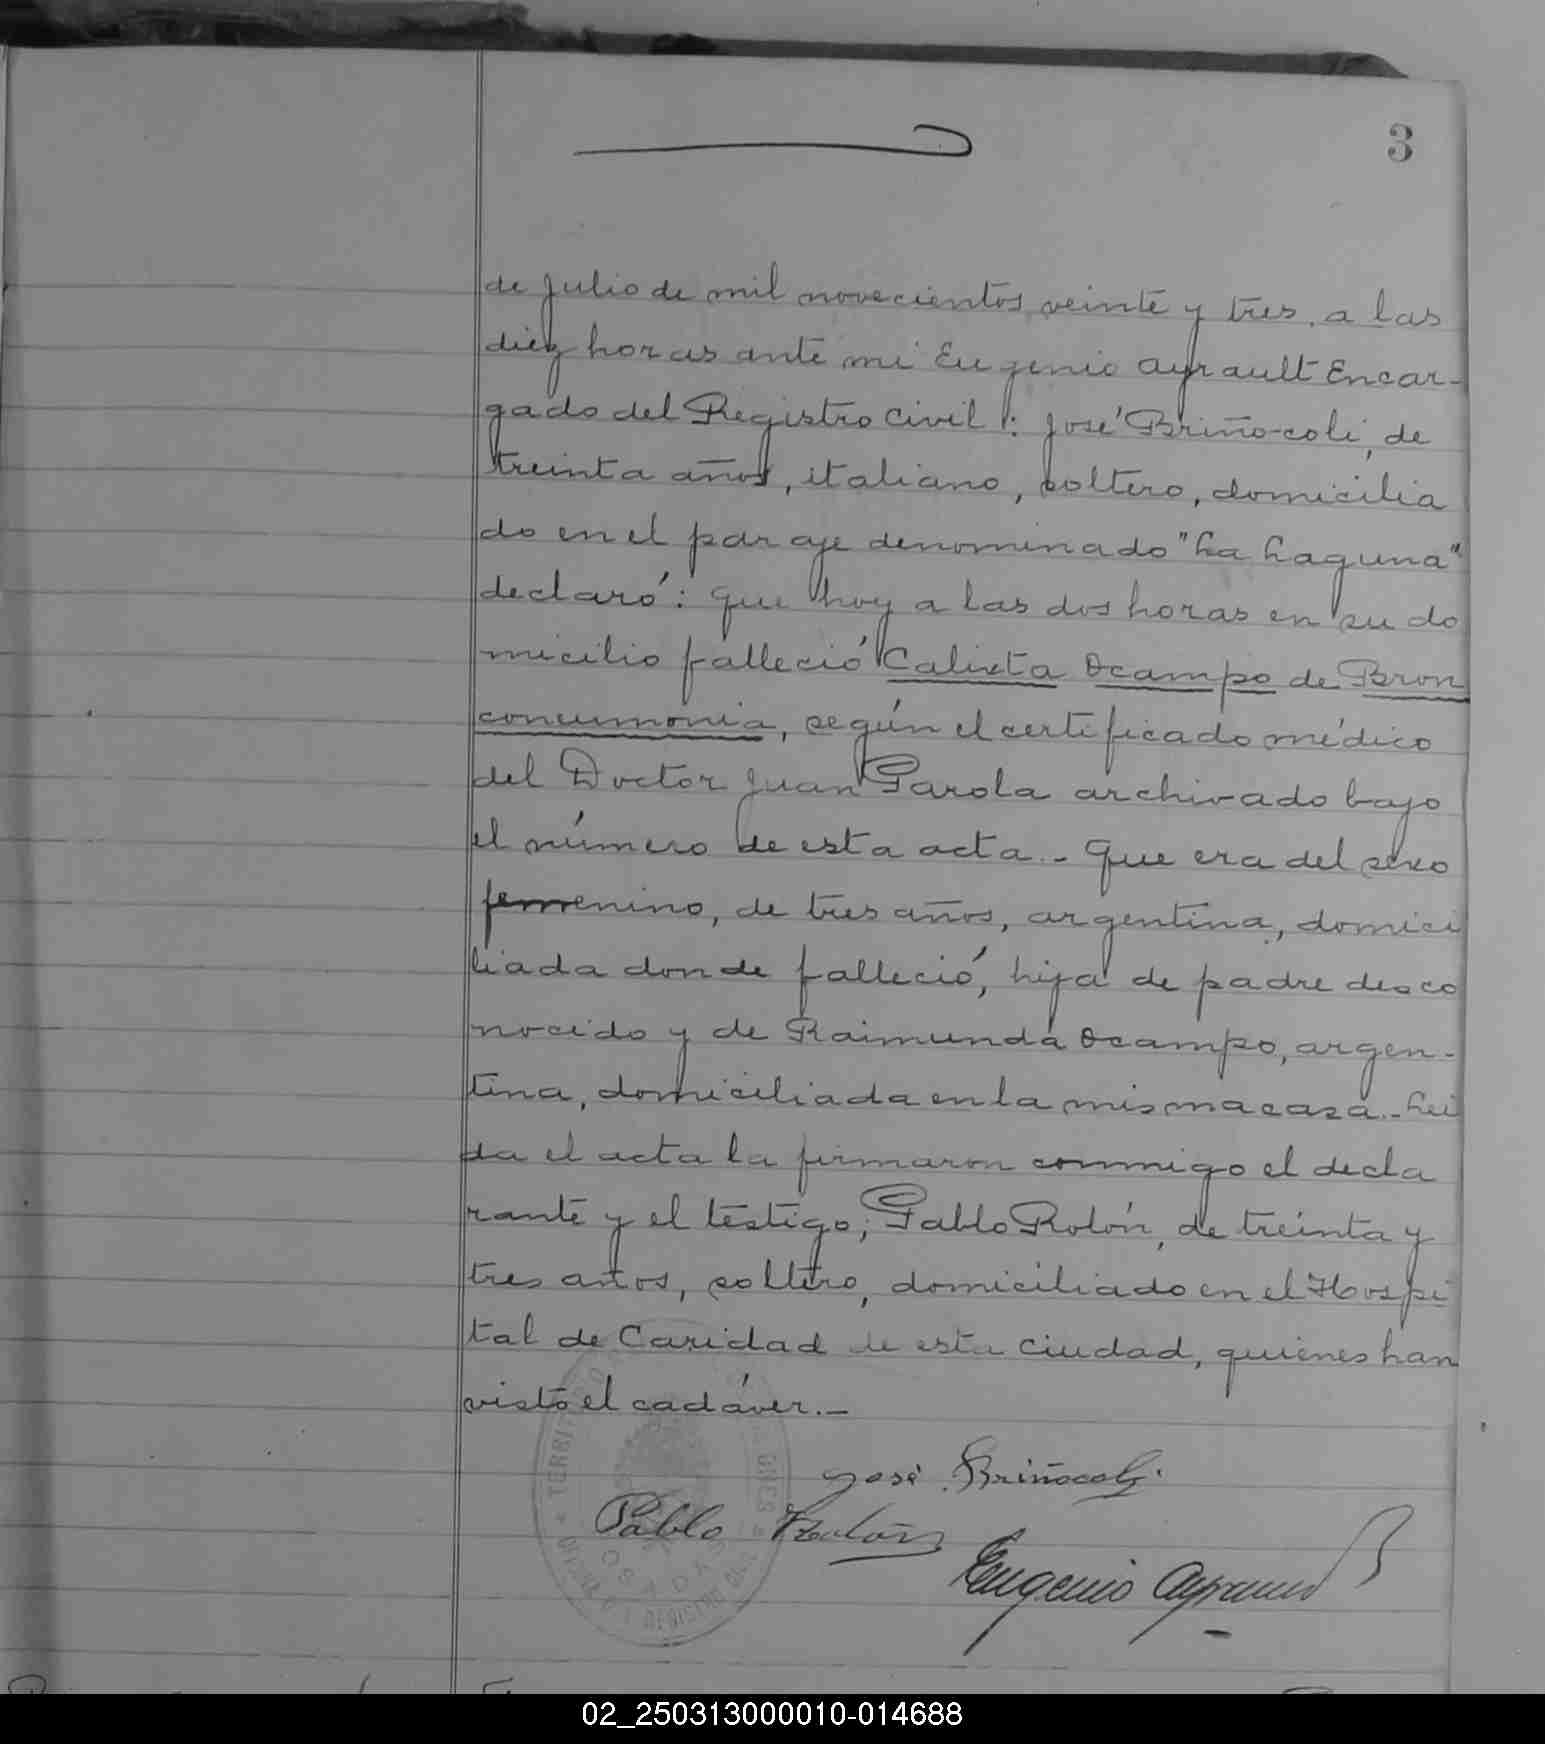 3
de Julio de mil novecientos veinte y tres, a las
diez horas ante mi Eugenio Ayrault Encar-
gado del Registro Civil: José Briño-coli, de
treinta años, italiano, soltero, domicilia
do en el paraje denominado "La Laguna"
declaró: que hoy a las dos horas en su do
micilio falleció Calixta Ocampo de Bron
coneumonia, según el certificado médico
del Doctor Juan Parola archivado bajo
el número de esta acta.- Que era del sexo
femenino, de tres años, argentina, domici
liada donde falleció, hija de padre desco
nocido y de Raimunda Ocampo, argen-
tina, domiciliada en la misma casa.- Leí
da el acta la firmaron conmigo el decla
rante y el testigo; Pablo Rolón, de treinta y
tres años, soltero, domiciliado en el Hospi
tal de Caridad de esta Ciudad, quienes han
visto el cadáver.-
José Briñocoli.
Pablo Rolón
Eugenio Ayrault
POSADAS
02_250313000010-014688